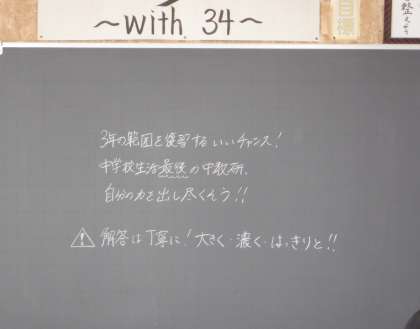 ～with 34～
目標
整える
3年の範囲を復習するいいチャンス！
中学校生活最後の中教研、
自分の力を出し尽くそう！！
⚠解答は丁寧に！大きく・濃く・はっきりと！！